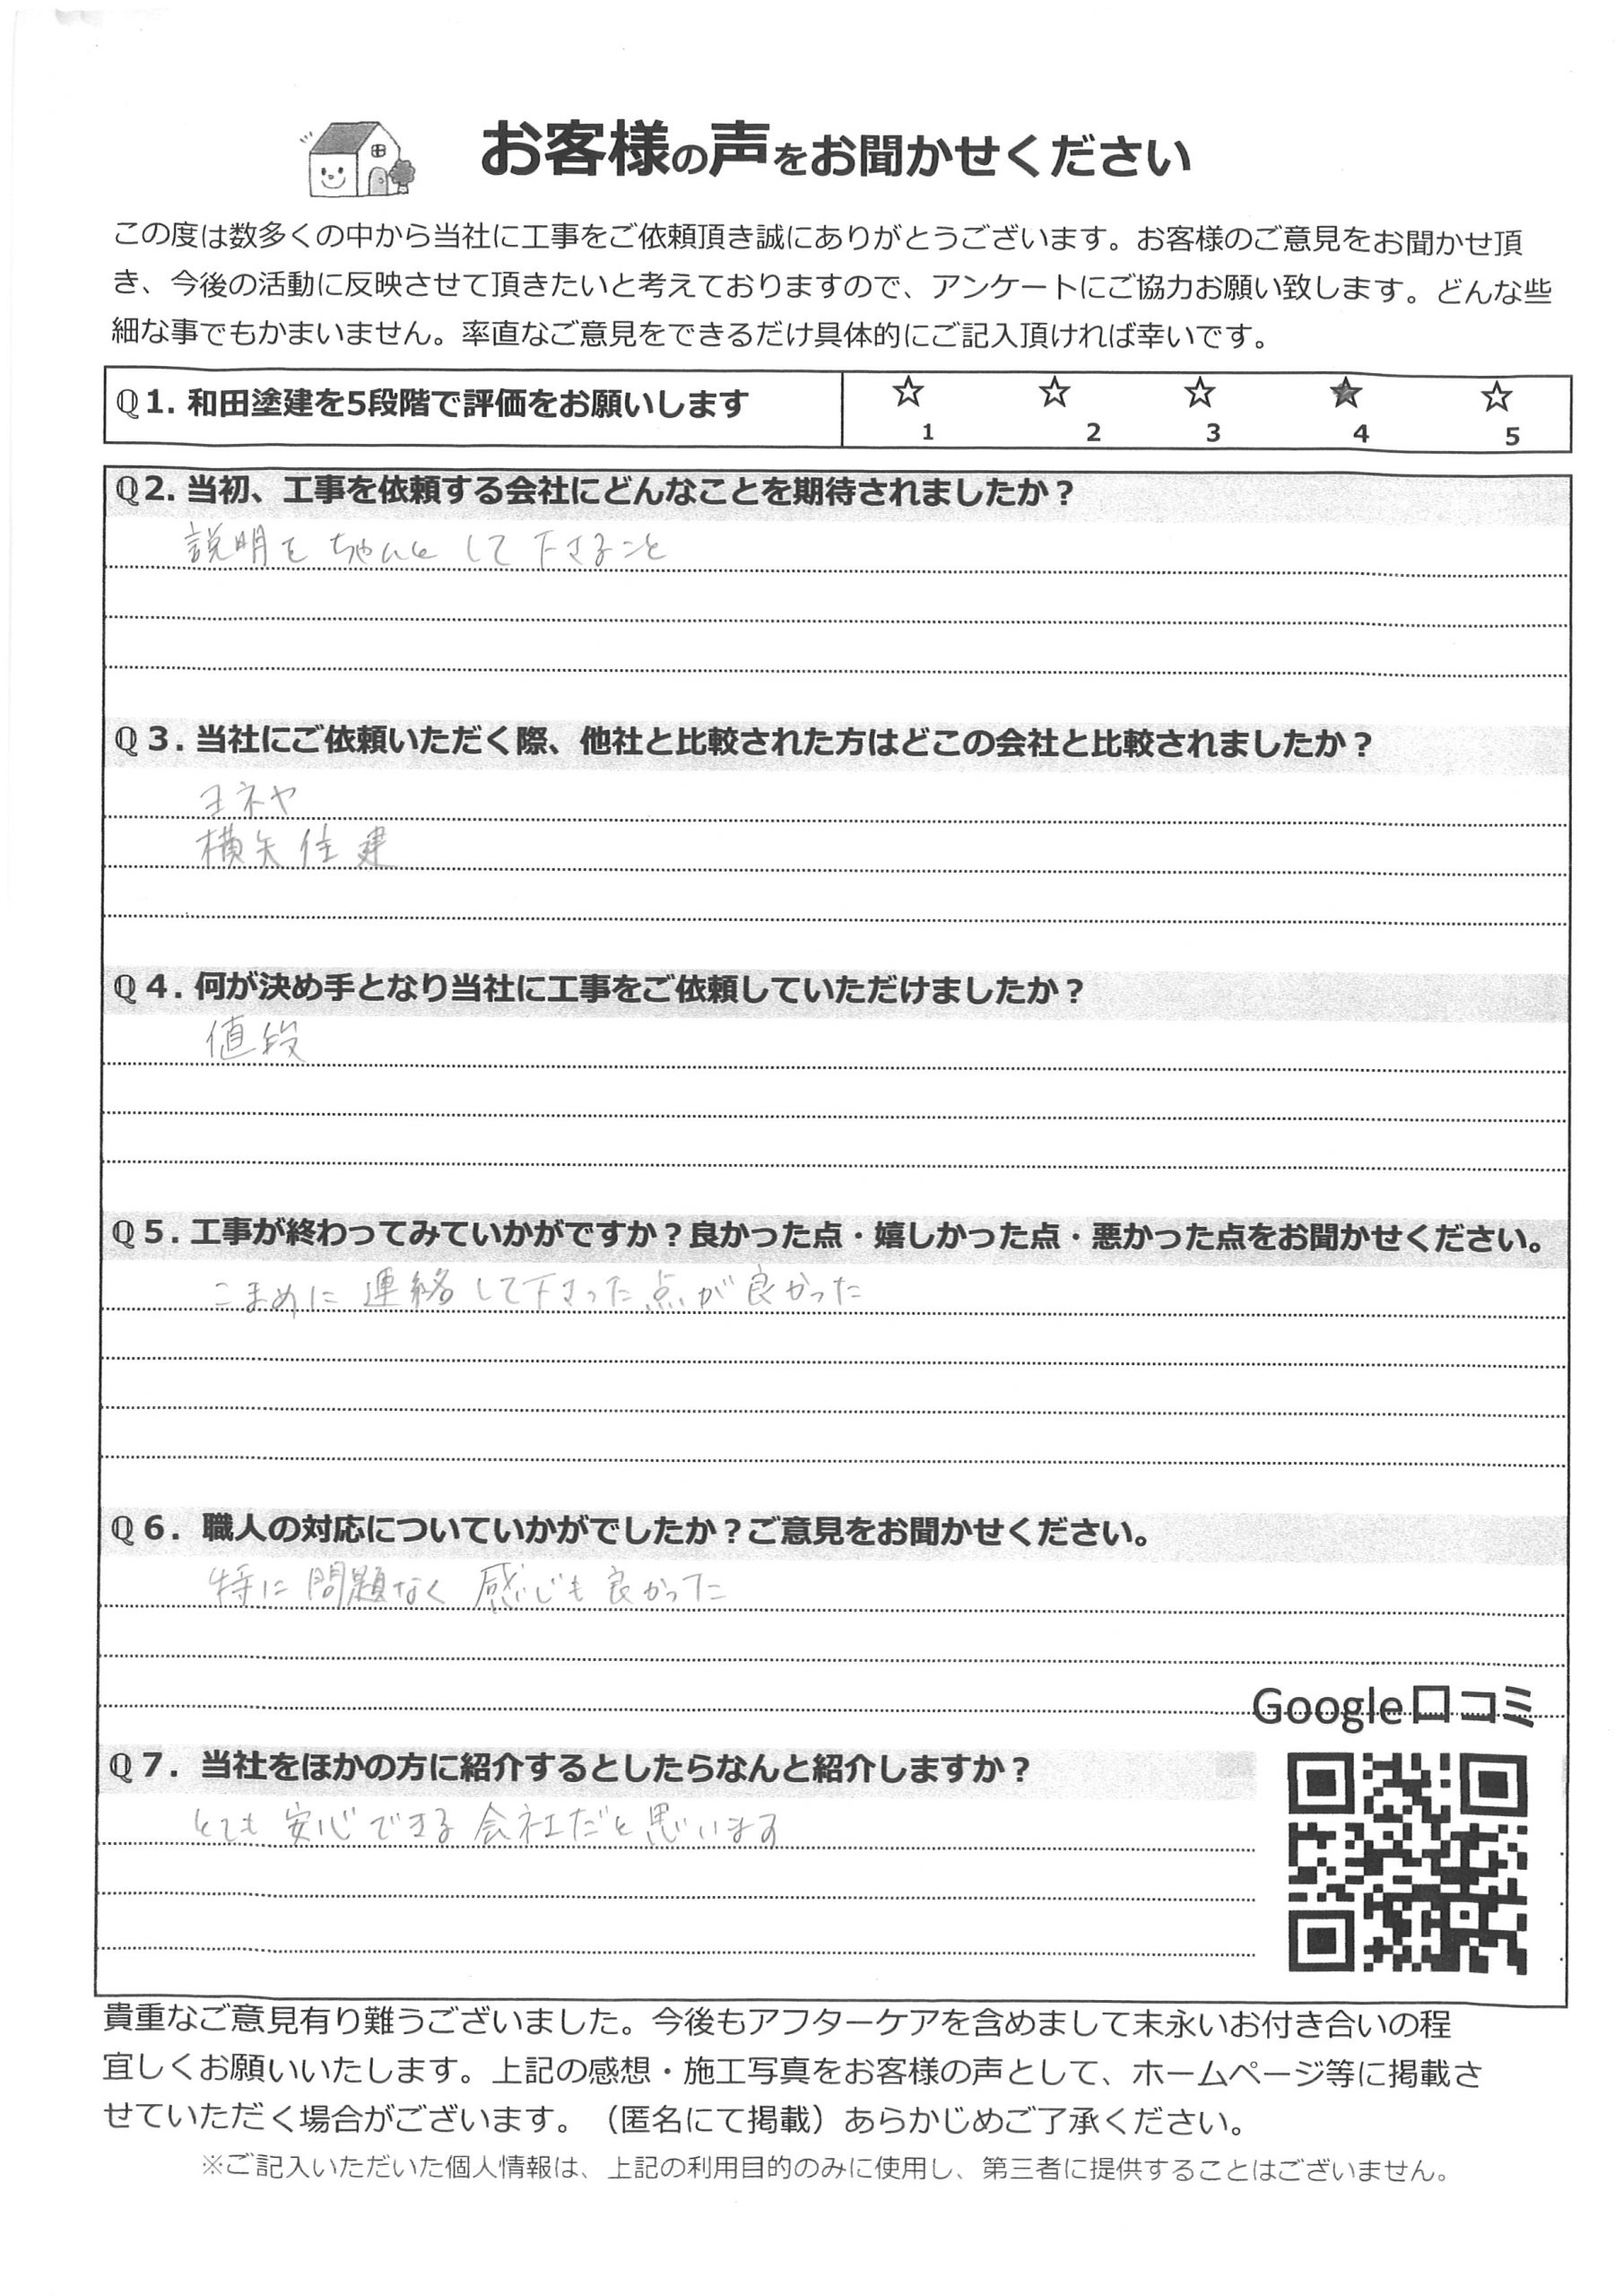 お客様の声をお聞かせください
この度は数多くの中から当社に工事をご依頼頂き誠にありがとうございます。お客様のご意見をお聞かせ頂
き、今後の活動に反映させて頂きたいと考えておりますので、アンケートにご協力お願い致します。どんな些
細な事でもかまいません。率直なご意見をできるだけ具体的にご記入頂ければ幸いです。
Q1. 和田塗建を5段階で評価をお願いします ☆ ☆ ☆ ★ ☆
1 2 3 4 5
Q2. 当初、工事を依頼する会社にどんなことを期待されましたか？
説明をちゃんとして下さること
Q3. 当社にご依頼いただく際、他社と比較された方はどこの会社と比較されましたか？
ヨネヤ
横矢住建
Q4. 何が決め手となり当社に工事をご依頼していただけましたか？
値段
Q5. 工事が終わってみていかがですか？良かった点・嬉しかった点・悪かった点をお聞かせください。
こまめに連絡して下さった点が良かった
Q6. 職人の対応についていかがでしたか？ご意見をお聞かせください。
特に問題なく感じも良かった
Google口コミ
Q7. 当社をほかの方に紹介するとしたらなんと紹介しますか？
とても安心できる会社だと思います
貴重なご意見有り難うございました。今後もアフターケアを含めまして末永いお付き合いの程
宜しくお願いいたします。上記の感想・施工写真をお客様の声として、ホームページ等に掲載さ
せていただく場合がございます。（匿名にて掲載）あらかじめご了承ください。
※ご記入いただいた個人情報は、上記の利用目的のみに使用し、第三者に提供することはございません。